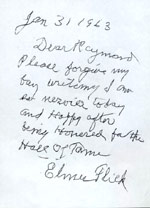 Jan 31 1963
Dear Raymond
Please forgive my
bay writing I am
so nervice today
and Happy after
being Honored for the
Hall of Fame
Elmer Flick